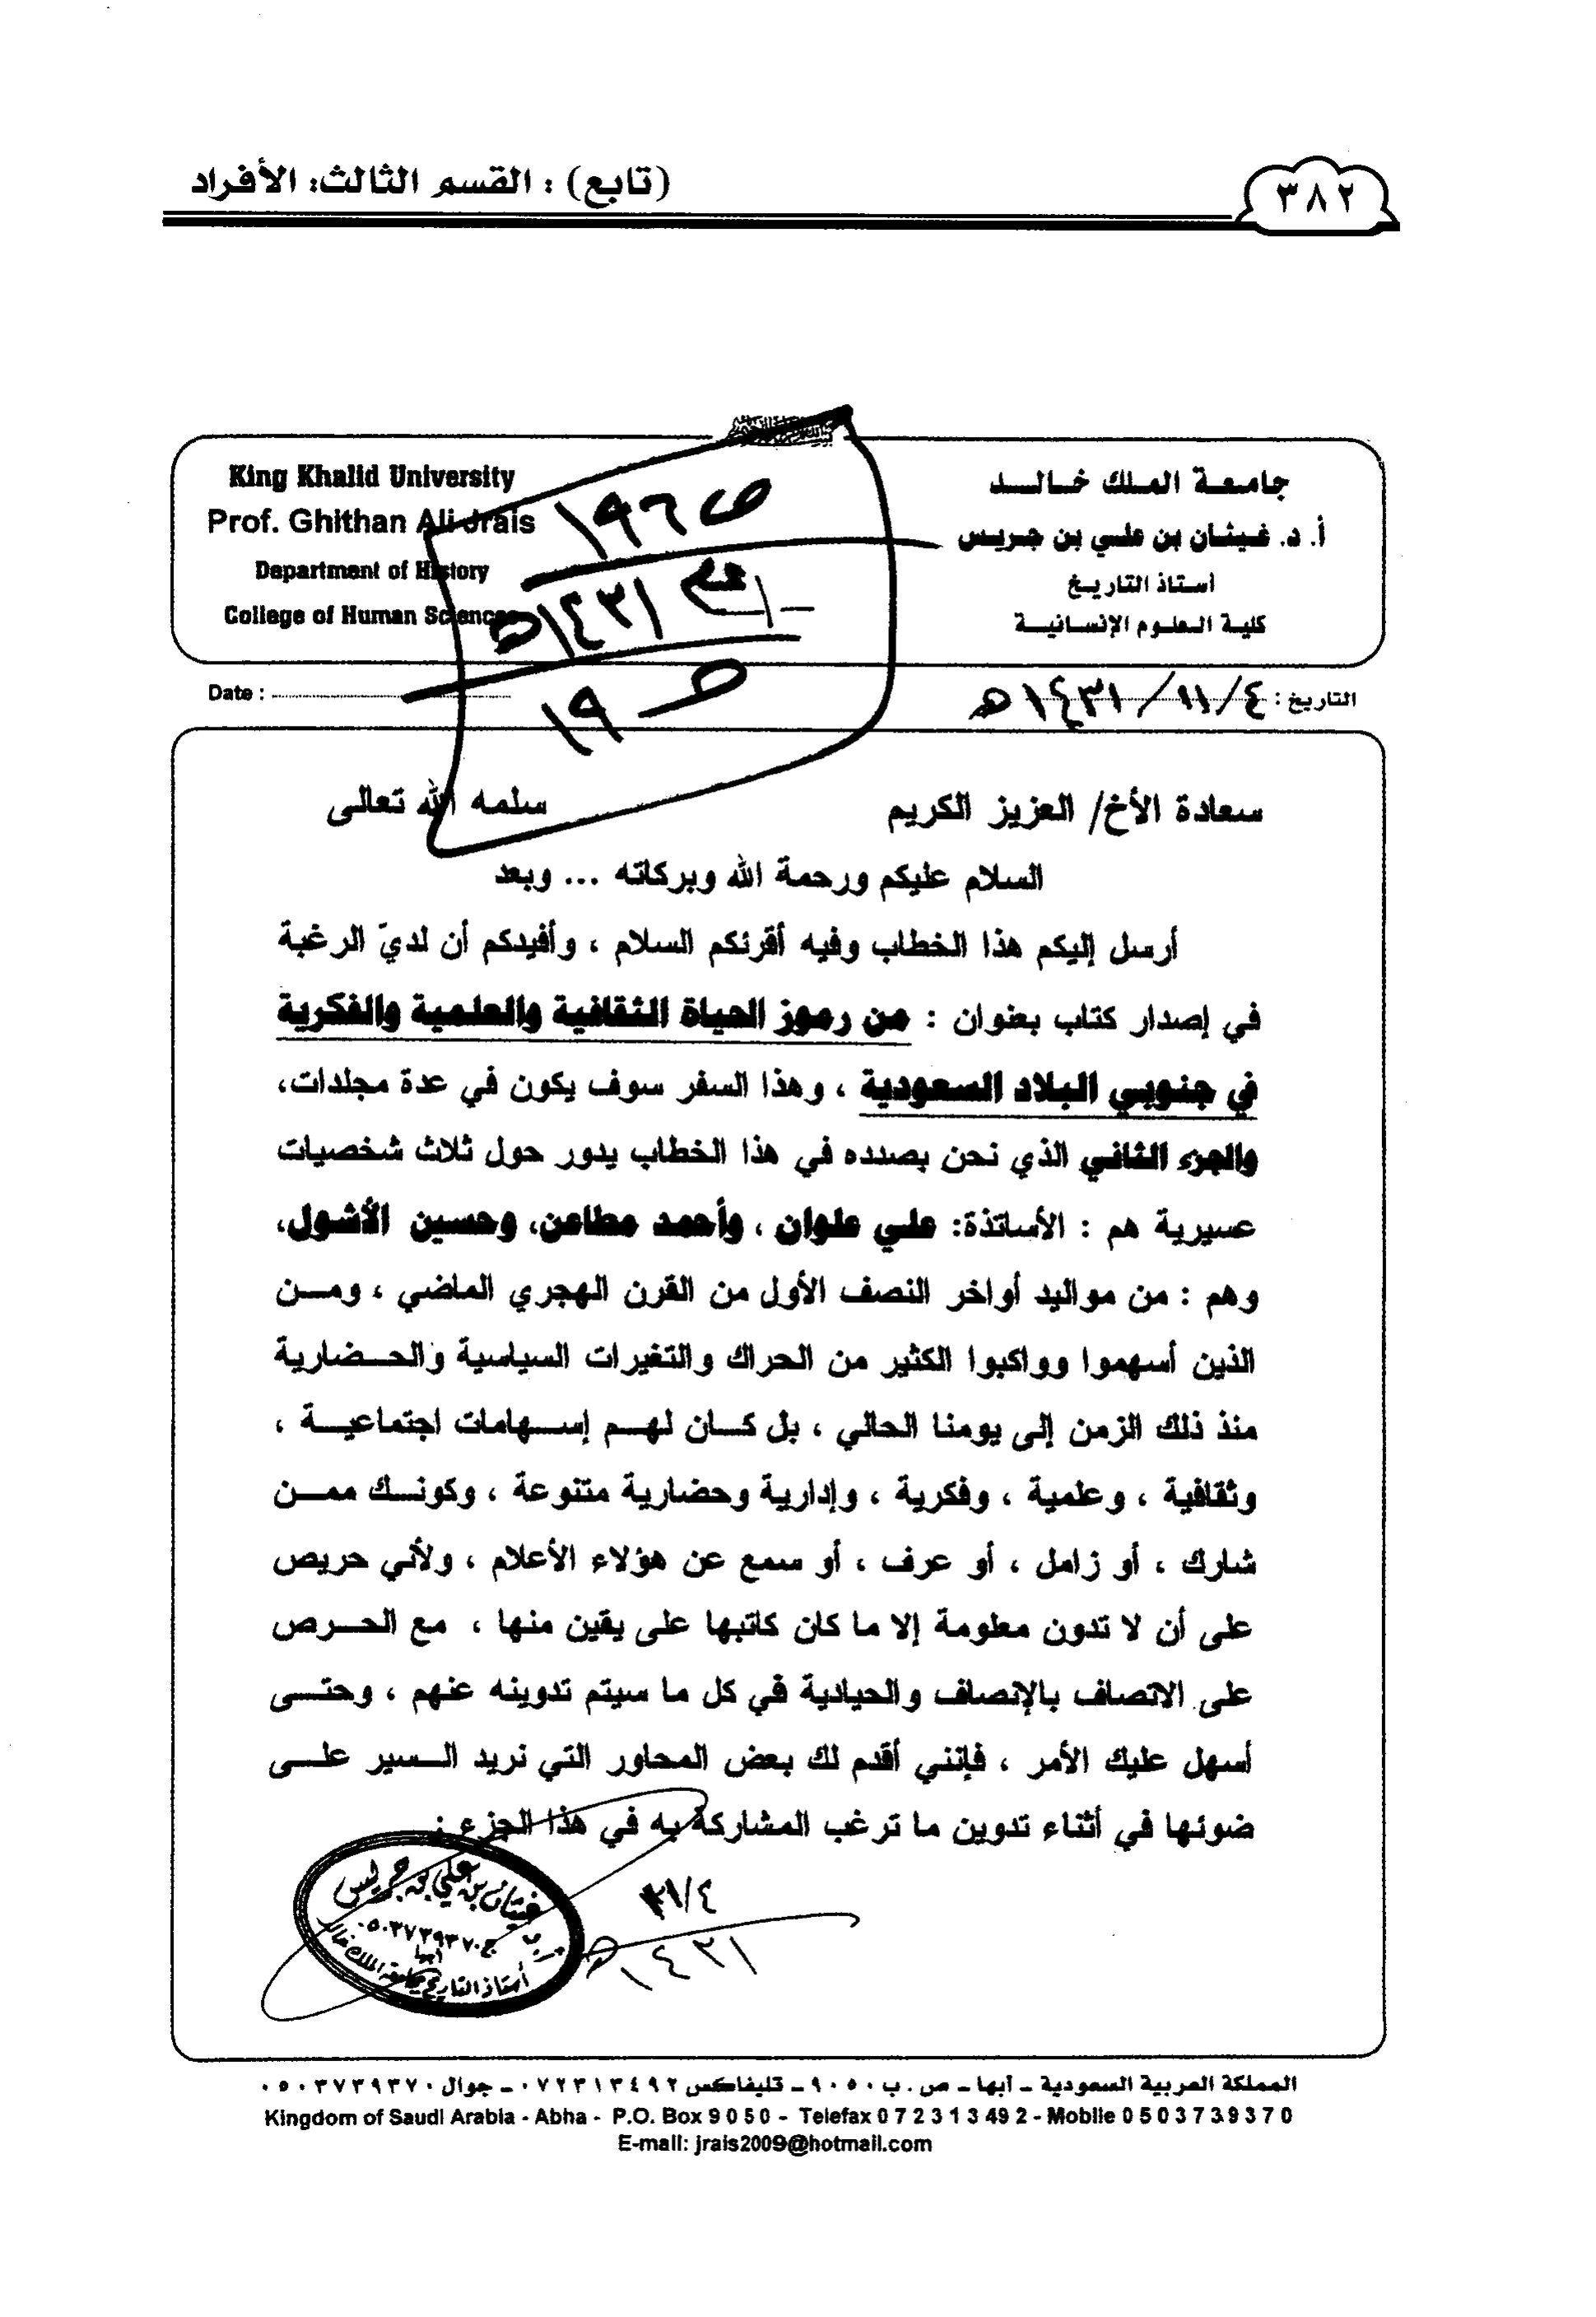 ٣٨٢
(تابع) : القسم الثالث: الأفراد
جامعة الملك خالد
أ. د. غيثان بن علي بن جريس
أستاذ التاريخ
كلية العلوم الإنسانية
King Khalid University
Prof. Ghithan Ali Jrais
Department of History
College of Human Sciences
ص ١٩٦
١٤٣١هـ
ص ١٩
التاريخ : ٤/ ١١/ ١٤٣١هـ
Date :
سعادة الأخ/ العزيز الكريم سلمه الله تعالى
السلام عليكم ورحمة الله وبركاته ... وبعد
أرسل إليكم هذا الخطاب وفيه أقرئكم السلام ، وأفيدكم أن لديّ الرغبة
في إصدار كتاب بعنوان : من رموز الحياة الثقافية والعلمية والفكرية
في جنوبي البلاد السعودية ، وهذا السفر سوف يكون في عدة مجلدات،
والجزء الثاني الذي نحن بصدده في هذا الخطاب يدور حول ثلاث شخصيات
عسيرية هم : الأساتذة: علي علوان ، وأحمد مطاعن، وحسين الأشول،
وهم : من مواليد أواخر النصف الأول من القرن الهجري الماضي ، ومن
الذين أسهموا وواكبوا الكثير من الحراك والتغيرات السياسية والحضارية
منذ ذلك الزمن إلى يومنا الحالي ، بل كان لهم إسهامات اجتماعية ،
وثقافية ، وعلمية ، وفكرية ، وإدارية وحضارية متنوعة ، وكونك ممن
شارك ، أو زامل ، أو عرف ، أو سمع عن هؤلاء الأعلام ، ولأني حريص
على أن لا تدون معلومة إلا ما كان كاتبها على يقين منها ، مع الحرص
على الاتصاف بالإنصاف والحيادية في كل ما سيتم تدوينه عنهم ، وحتى
أسهل عليك الأمر ، فإنني أقدم لك بعض المحاور التي نريد السير على
ضوئها في أثناء تدوين ما ترغب المشاركة به في هذا الجزء :
غيثان بن علي بن جريس
ج ٠٥٠٣٧٣٩٣٧٠
أبها
أستاذ التاريخ بجامعة الملك خالد
١٤٣١هـ
المملكة العربية السعودية – أبها – ص . ب ٩٠٥٠ – تليفاكس ٠٧٢٣١٣٤٩٢ – جوال ٠٥٠٣٧٣٩٣٧٠
Kingdom of Saudi Arabia - Abha - P.O. Box 9 0 5 0 - Telefax 0 7 2 3 1 3 49 2 - Mobile 0 5 0 3 7 3 9 3 7 0
E-mail: jrais2009@hotmail.com